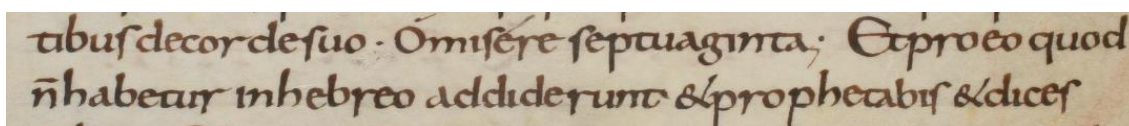 tibus decorde suo · Omisere septuaginta; Et pro eo quod
n̄ habetur inhebreo addiderunt & prophetabis & dices